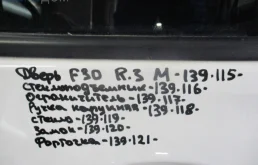 Дверь F30 R.3 М-139.115-
Стеклоподъемник-139.116-
Ограничитель-139.117-
Ручка наружная-139.118-
стекло-139.119-
Замок-139.120-
Форточка-139.121-